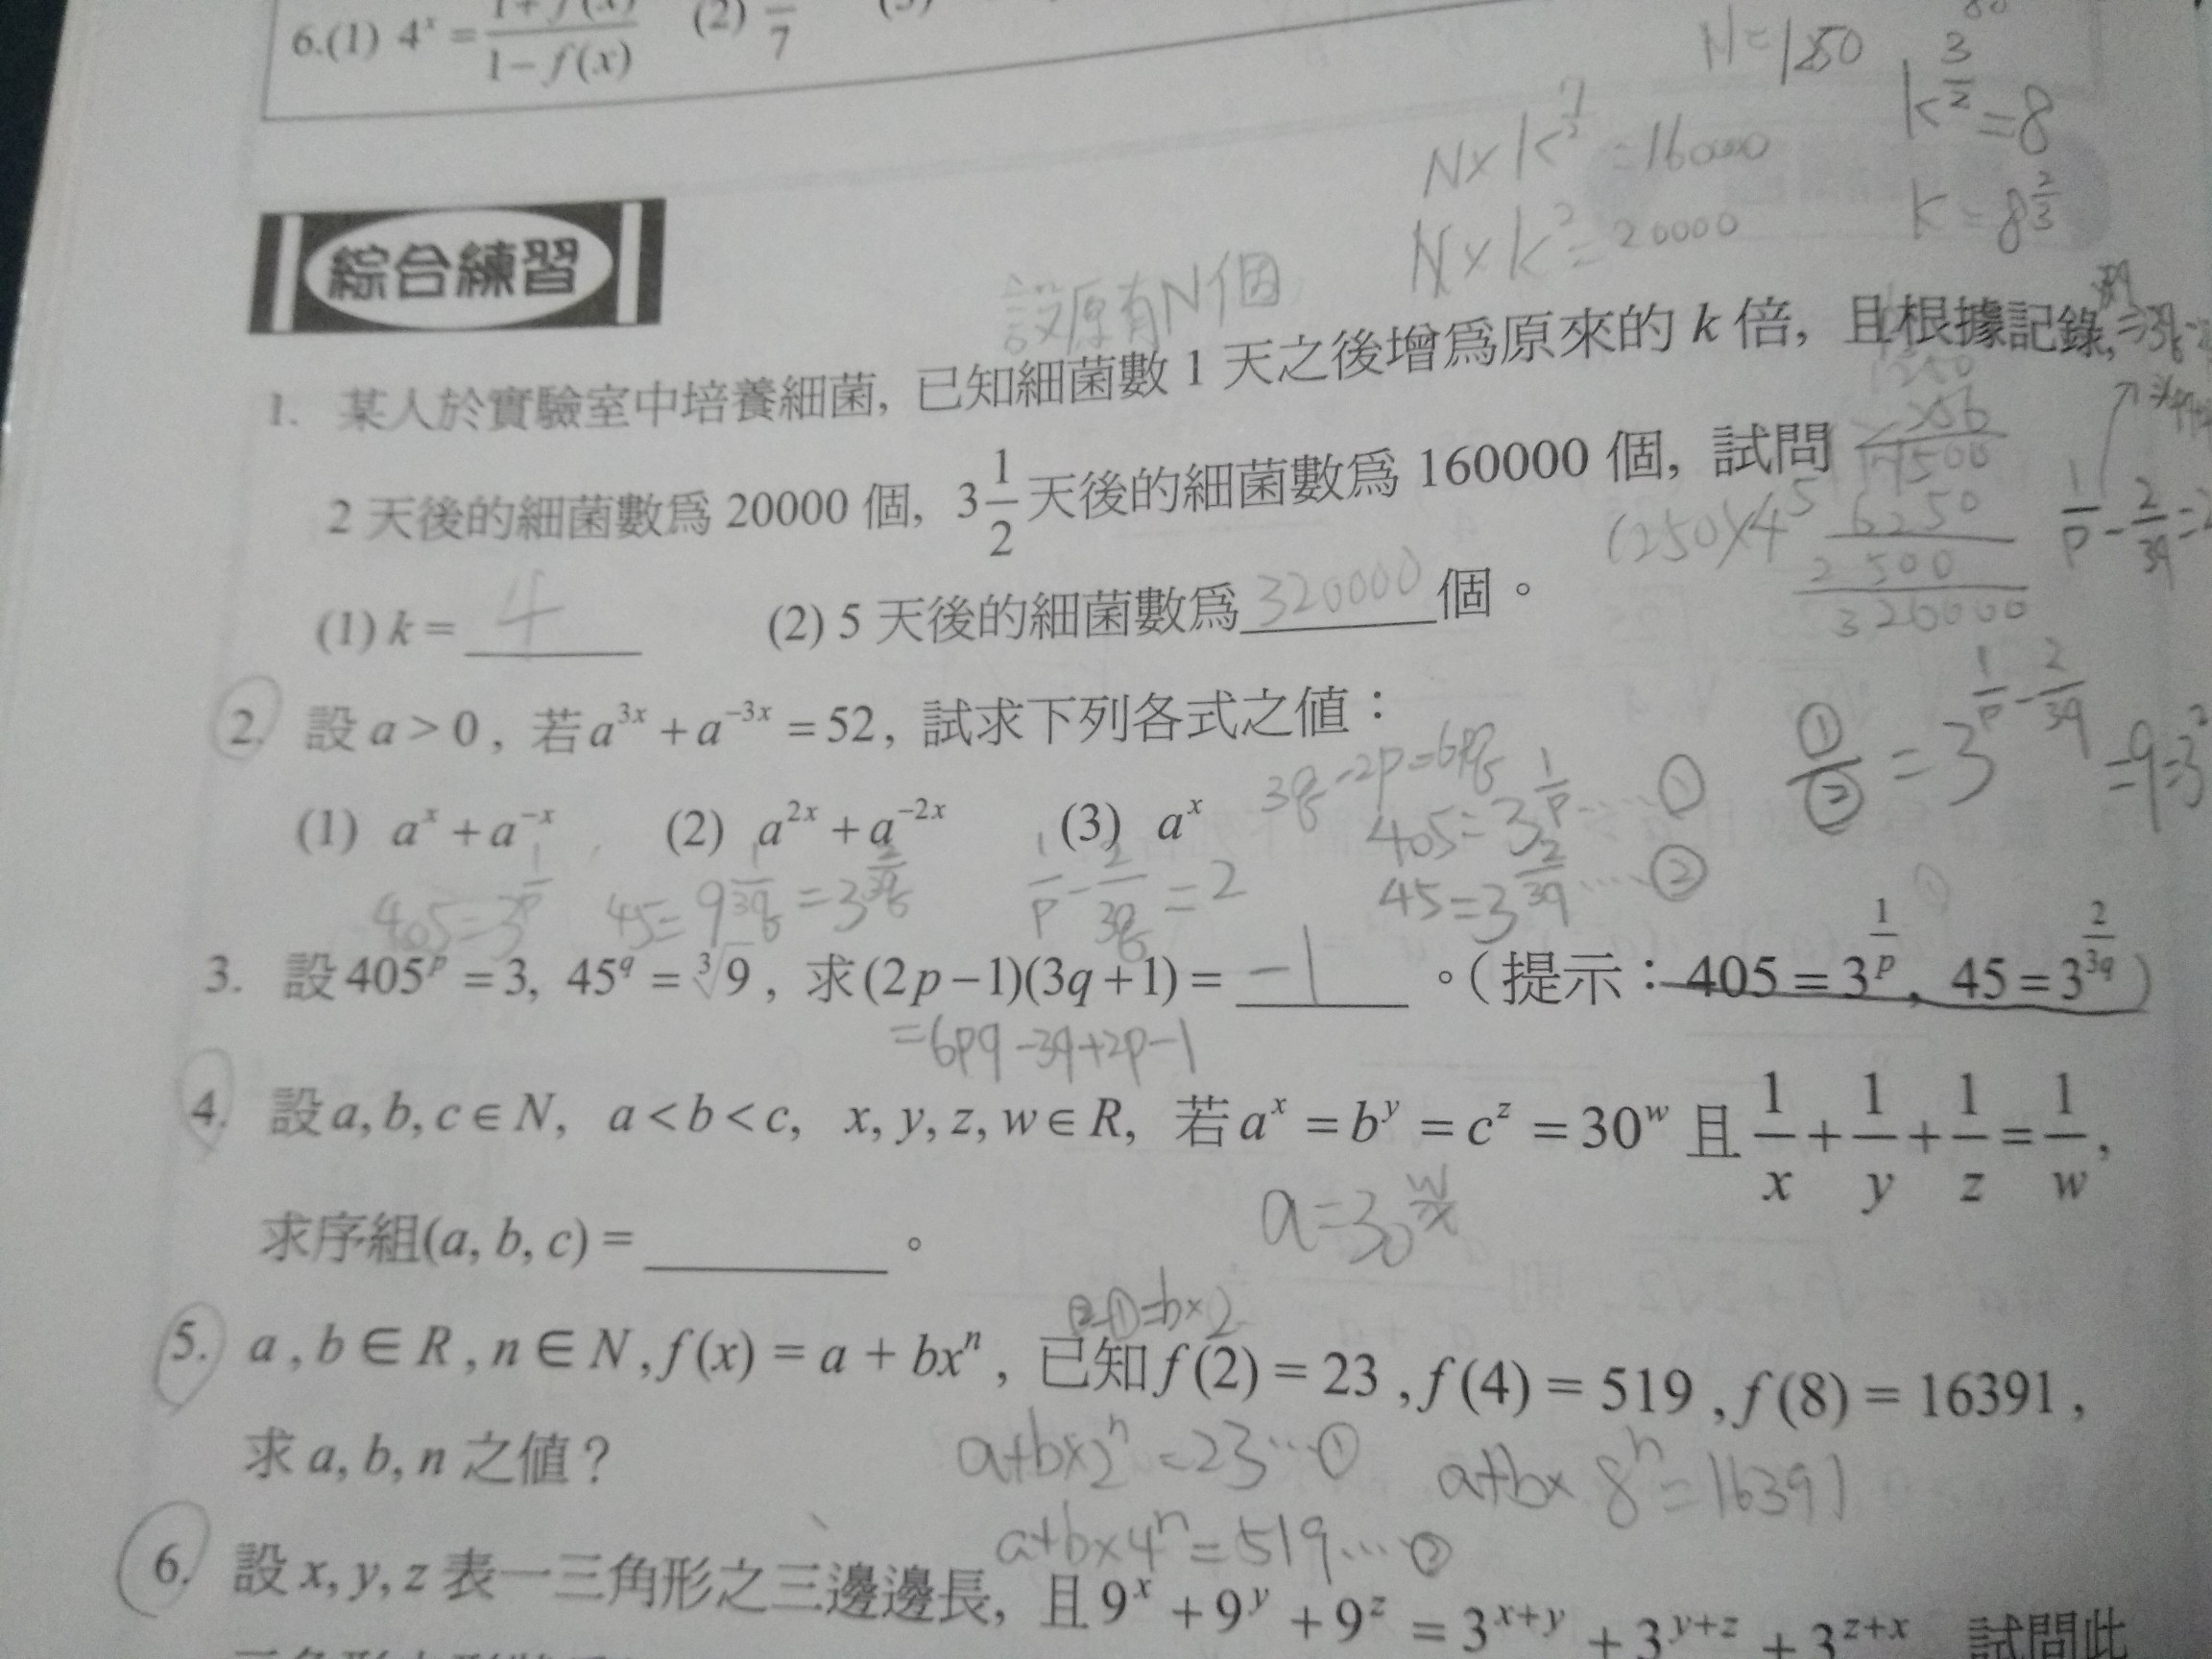 6.(1) 4ˣ = (1+f(x))/(1−f(x)) (2) /7 (3)
N=1250
k^(3/2)=8
N×k^(7/2)=16000
k=8^(2/3)
N×k²=20000
綜合練習
設原有N個
1. 某人於實驗室中培養細菌, 已知細菌數 1 天之後增為原來的 k 倍, 且根據記錄,
1250
256
2 天後的細菌數為 20000 個, 3 1/2 天後的細菌數為 160000 個, 試問
6250
2500
320000
(1) k = 4 (2) 5 天後的細菌數為 320000 個。
2. 設 a > 0 , 若 a^(3x) + a^(−3x) = 52, 試求下列各式之值：
①/② = 3^(1/p − 2/3q) =9=3²
3q−2p=6pq
(1) aˣ + a⁻ˣ (2) a^(2x) + a^(−2x) (3) aˣ
405=3^(1/p) …… ①
405=3^(1/p) 45=9^(1/3q)=3^(2/3q) 1/p − 2/3q = 2
45=3^(2/3q) …… ②
3. 設 405^p = 3, 45^q = ³√9 , 求 (2p−1)(3q+1) = −1 。（提示：405 = 3^(1/p) , 45 = 3^(2/3q)）
=6pq−3q+2p−1
4. 設 a, b, c ∈ N, a < b < c, x, y, z, w ∈ R, 若 aˣ = bʸ = c^z = 30^w 且 1/x + 1/y + 1/z = 1/w ,
a=30^(w/x)
求序組(a, b, c) = ______ 。
②−①=b×2
5. a , b ∈ R , n ∈ N , f(x) = a + bxⁿ , 已知 f(2) = 23 , f(4) = 519 , f(8) = 16391 ,
求 a, b, n 之值？
a+b×2ⁿ=23…①
a+b×8ⁿ=16391
a+b×4ⁿ=519…②
6. 設 x, y, z 表一三角形之三邊邊長, 且 9ˣ + 9ʸ + 9^z = 3^(x+y) + 3^(y+z) + 3^(z+x) 試問此